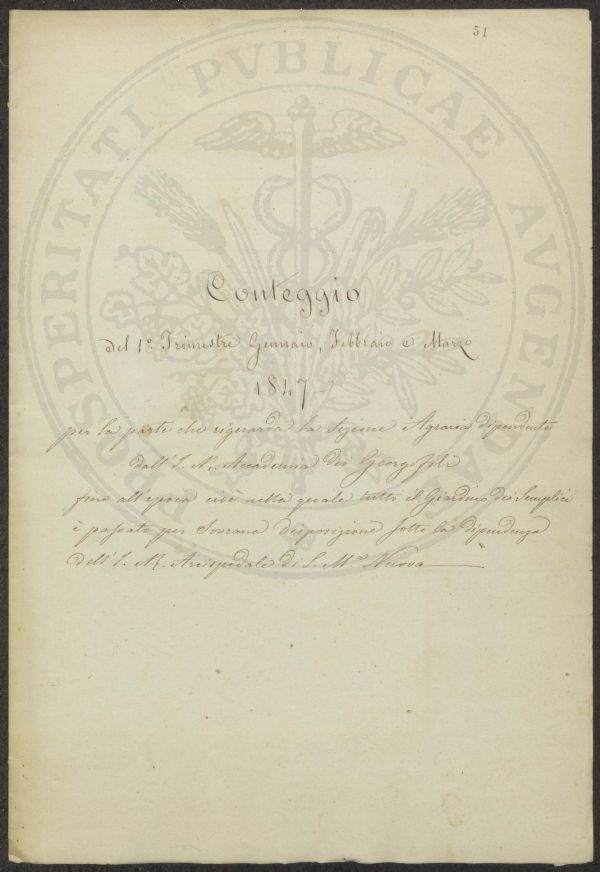 51
PROSPERITATI PVBLICAE AVGENDAE
Conteggio
del 1º. Trimestre Gennaio, Febbraio e Marzo
1847
per la parte che riguarda la Sezione Agraria dipendente
dall' I. R. Accademia dei Georgofili
fino all'epoca cioè nella quale tutto il Giardino dei Semplici
è passato per Sovrana disposizione sotto la dipendenza
dell' I. R. Arcispedale di S. Mª Nuova